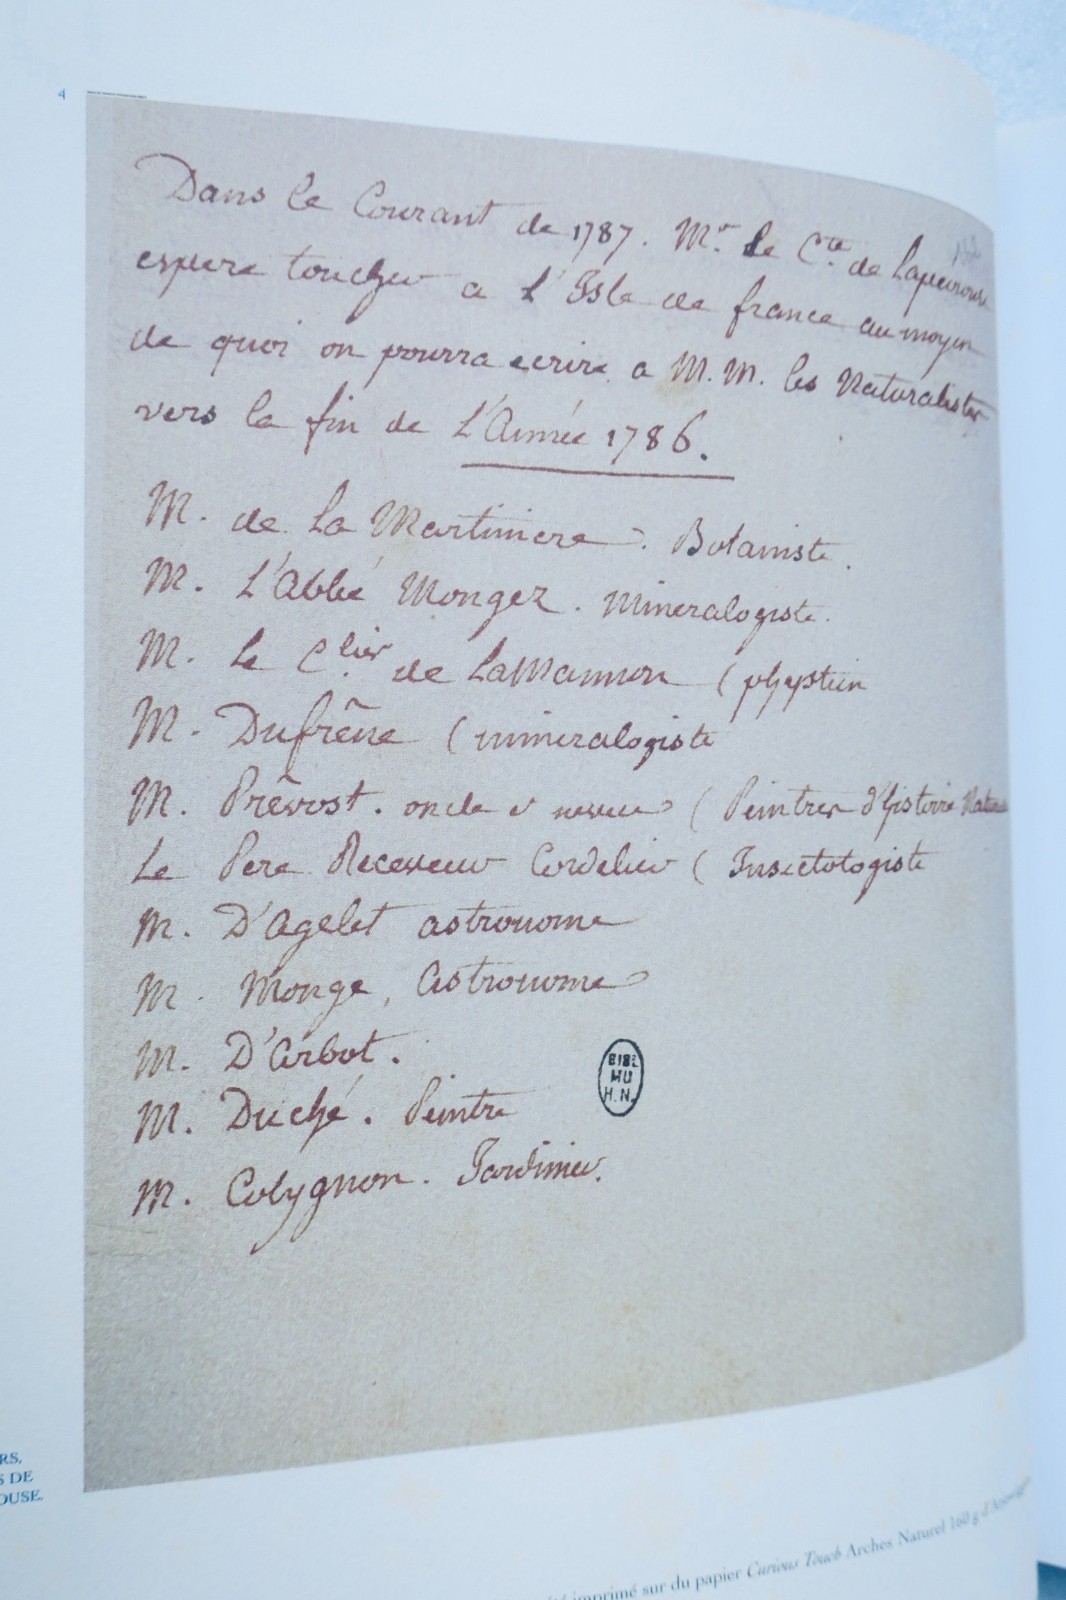 4
Dans le Courant de 1787. Mr. le Cte. de Lapeirouse
espere toucher a L'Isle de france au moyen
de quoi on pourra ecrire a M. M. les Naturalistes
vers la fin de L'Année 1786.
M. de la Martiniere. Botaniste.
M. L'Abbé Mongez. Mineralogiste.
M. Le C.lier de LaMannon (physicien
M. Dufrêne (mineralogiste
M. Prêvost. oncle et neveu (Peintres d'histoire
Le Pere Receveur Cordelier (Insectologiste
M. D'Agelet astronome
M. Monge, Astronome
M. D'Arbot.
BIBL
MU
H.N.
M. Duché. Peintre
M. Colygnon. Jardinier.
RS,
S DE
OUSE.
imprimé sur du papier Curious Touch Arches Naturel 160 g